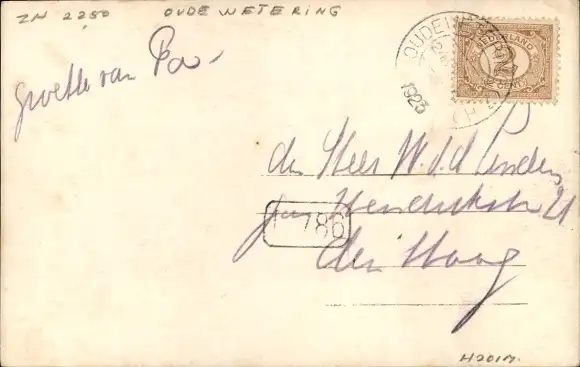 ZH 2250 OUDE WETERING
Groeten van Pa.
OUDEWETERING
1923
NEDERLAND
CENT
den Heer W. v. d. Linden
Hendrikstr 21
Den Haag
786
H201M.